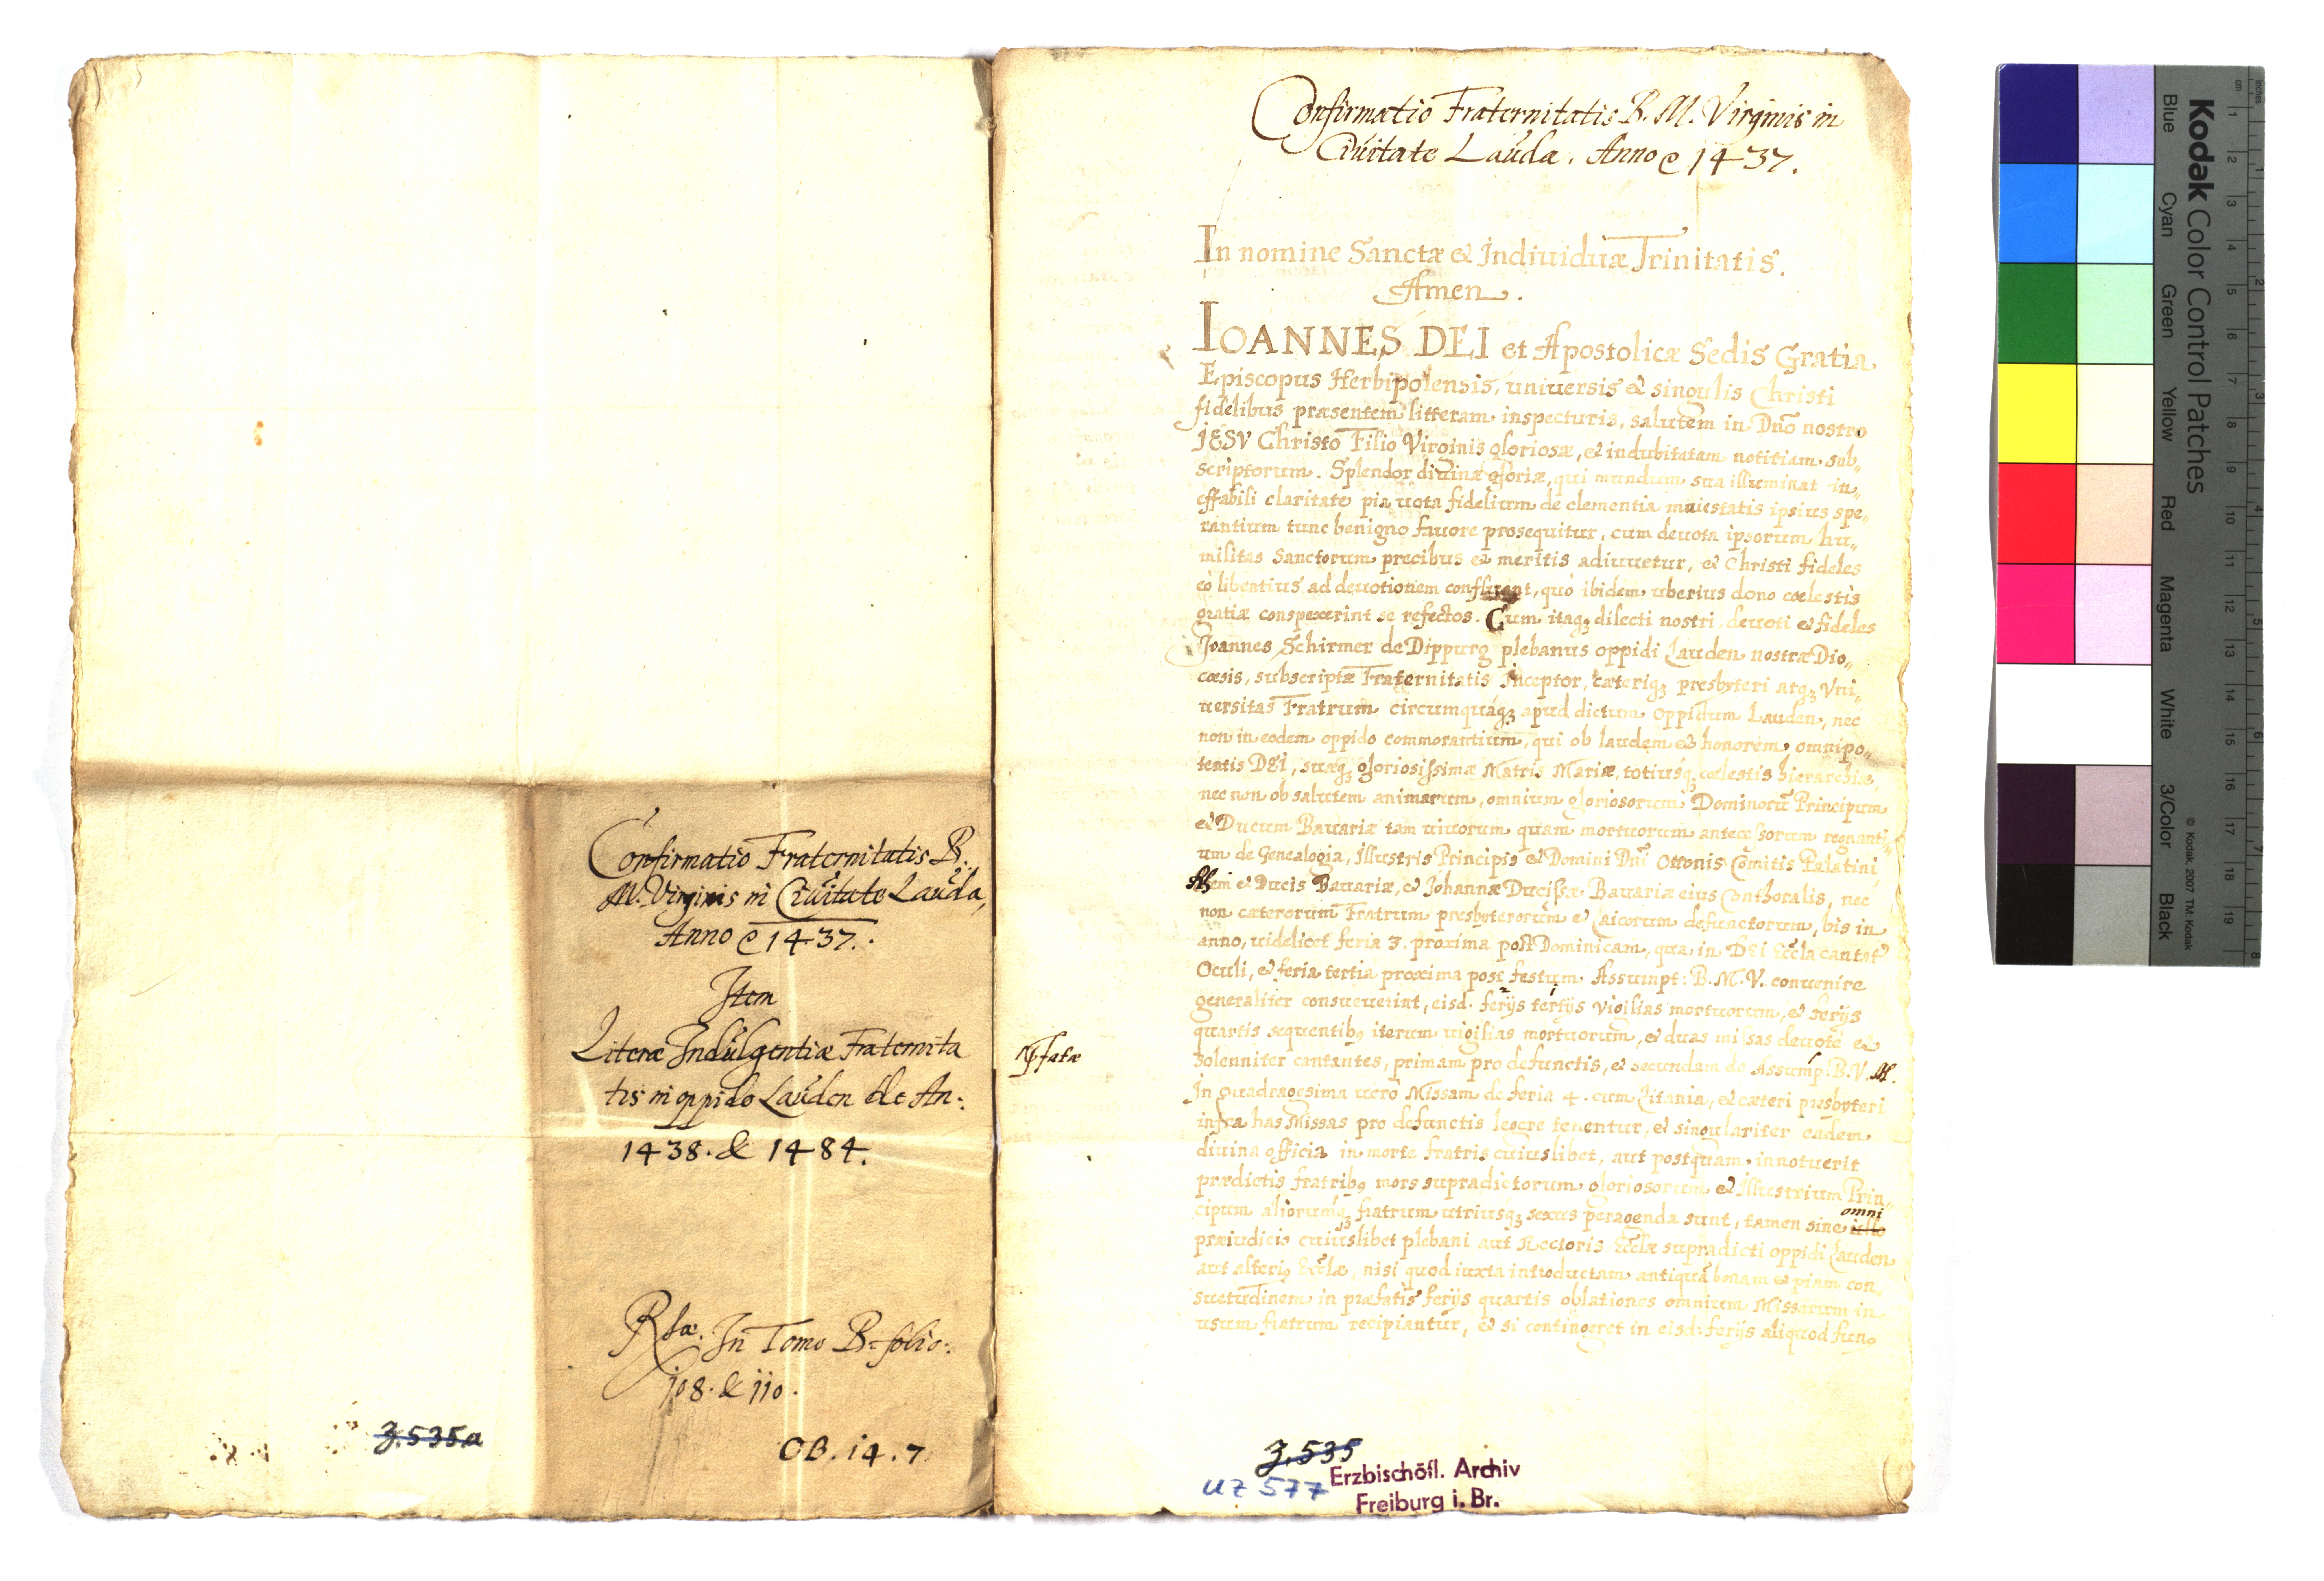 Confirmatio Fraternitatis B.
M. Virginis in Ciuitate Lauda,
Anno @ 1437.
Item
Literæ Indulgentiæ Fraternita
tis in oppido Lauden de An:
1438. & 1484.
Rsa. In Tomo B. folio:
108. & 110.
OB. 14. 7
Z. 535a
Confirmatio Fraternitatis B. M. Virginis in
Ciuitate Lauda. Anno @ 1437.
In nomine Sanctæ & Indiuiduæ Trinitatis.
Amen.
IOANNES DEI et Apostolicæ Sedis Gratia
Episcopus Herbipolensis, uniuersis & singulis Christi
fidelibus præsentem litteram inspecturis, salutem in Dño nostro
JESV Christo Filio Virginis gloriosæ, & indubitatam notitiam sub„
scriptorum. Splendor diuinæ gloriæ, qui mundum sua illuminat in„
effabili claritate pia uota fidelium de clementia maiestatis ipsius spe„
rantium tunc benigno fauore prosequitur, cum deuota ipsorum hu„
militas Sanctorum precibus & meritis adiuuetur, & Christi fideles
eò libentius ad deuotionem confluent, quò ibidem uberius dono cœlestis
gratiæ conspexerint se refectos. Cum itaq₃ dilecti nostri deuoti & fideles
Joannes Schirmer de Dippurg plebanus oppidi Lauden nostræ Dio„
cœsis, subscriptæ Fraternitatis Inceptor, cæteriq₃ presbyteri atq₃ Vni„
uersitas Fratrum circumquáq₃ apud dictum oppidum Lauden, nec
non in eodem oppido commorantium, qui ob laudem & honorem omnipo„
tentis DEI, suæq₃ gloriosissimæ Matris Mariæ, totiusq₃ cœlestis hierarchiæ,
nec non ob salutem animarum, omnium gloriosorum Dominorũ Principum
& Ducum Bauariæ tam uiuorum quam mortuorum antecessorum regnanti„
um de Genealogia, Illustris Principis & Domini Dñi Ottonis Comitis Palatini
Rheni & Ducis Bauariæ, & Johannæ Ducissæ Bauariæ eius Conthoralis, nec
non cæterorum Fratrum presbyterorum & Laicorum defunctorum, bis in
anno, uidelicet feria 3. proxima post Dominicam, qua in DEI Eccla cantat̃
Oculi, & feria tertia proxima post festum Assumpt: B. M. V. conuenire
generaliter consueuerint, eisd. ferijs tertijs vigilias mortuorum, & ferijs
quartis sequentibꝫ iterum uigilias mortuorum, & duas missas deuotè &
præfatæ
solenniter cantantes, primam pro defunctis, & secundam de Assump: B. V. M.
In quadragesima uero Missam de feria 4. cum Litania, & cæteri presbyteri
infra has Missas pro defunctis legere tenentur, & singulariter eadem
diuina officia in morte fratris cuiuslibet, aut postquam innotuerit
prædictis fratribꝫ mors supradictorum gloriosorum & Illustrium Prin„
cipum aliorumq₃ fratrum utriusq₃ sexus peragenda sunt, tamen sine ullo omni
præiudicio cuiuslibet plebani aut Rectoris Ecclæ supradicti oppidi Lauden
aut alteriꝫ Ecclæ, nisi quod iuxta introductam antiquã bonam & piam con
suetudinem in præfatis ferijs quartis oblationes omnium Missarum in
usum fratrum recipiantur, & si contingeret in eisd: ferijs aliquod fun„
Z. 535
UZ 577
Erzbischöfl. Archiv
Freiburg i. Br.
Kodak Color Control Patches
Blue Cyan Green Yellow Red Magenta White 3/Color Black
© Kodak, 2007 TM: Kodak
cm 1 2 3 4 5 6 7 8 9 10 11 12 13 14 15 16 17 18 19
inches 1 2 3 4 5 6 7 8